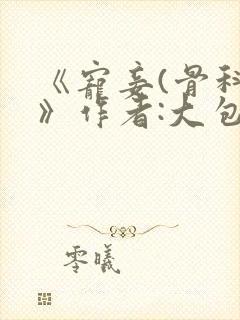 《宠妾(骨科
》作者:大包
零曦